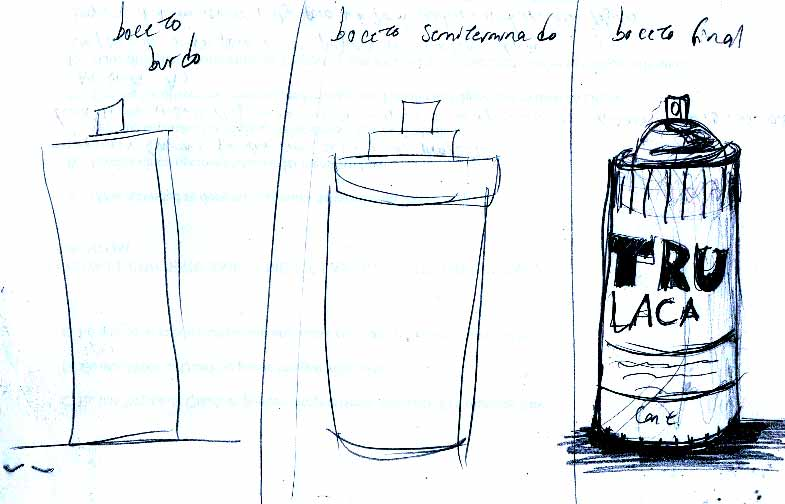 boceto
burdo
boceto semiterminado
boceto final
TRU
LACA